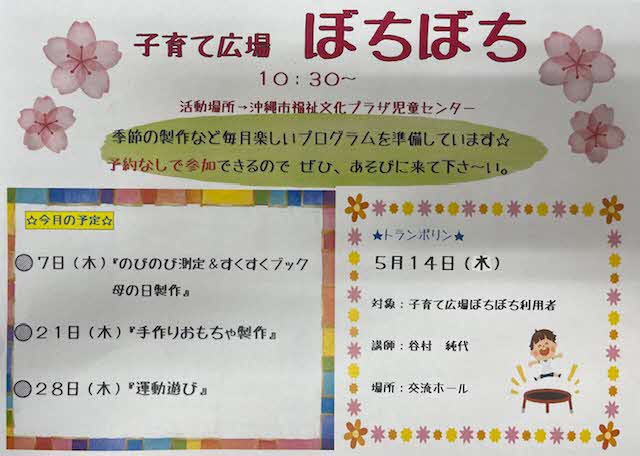 子育て広場 ぼちぼち
10:30～
活動場所→沖縄市福祉文化プラザ児童センター
季節の製作など毎月楽しいプログラムを準備しています☆
予約なしで参加できるので ぜひ、あそびに来て下さ～い。
☆今月の予定☆
●7日(木)『のびのび測定&すくすくブック
母の日製作』
●21日(木)『手作りおもちゃ製作』
●28日(木)『運動遊び』
★トランポリン★
5月14日(木)
対象:子育て広場ぼちぼち利用者
講師:谷村 純代
場所:交流ホール